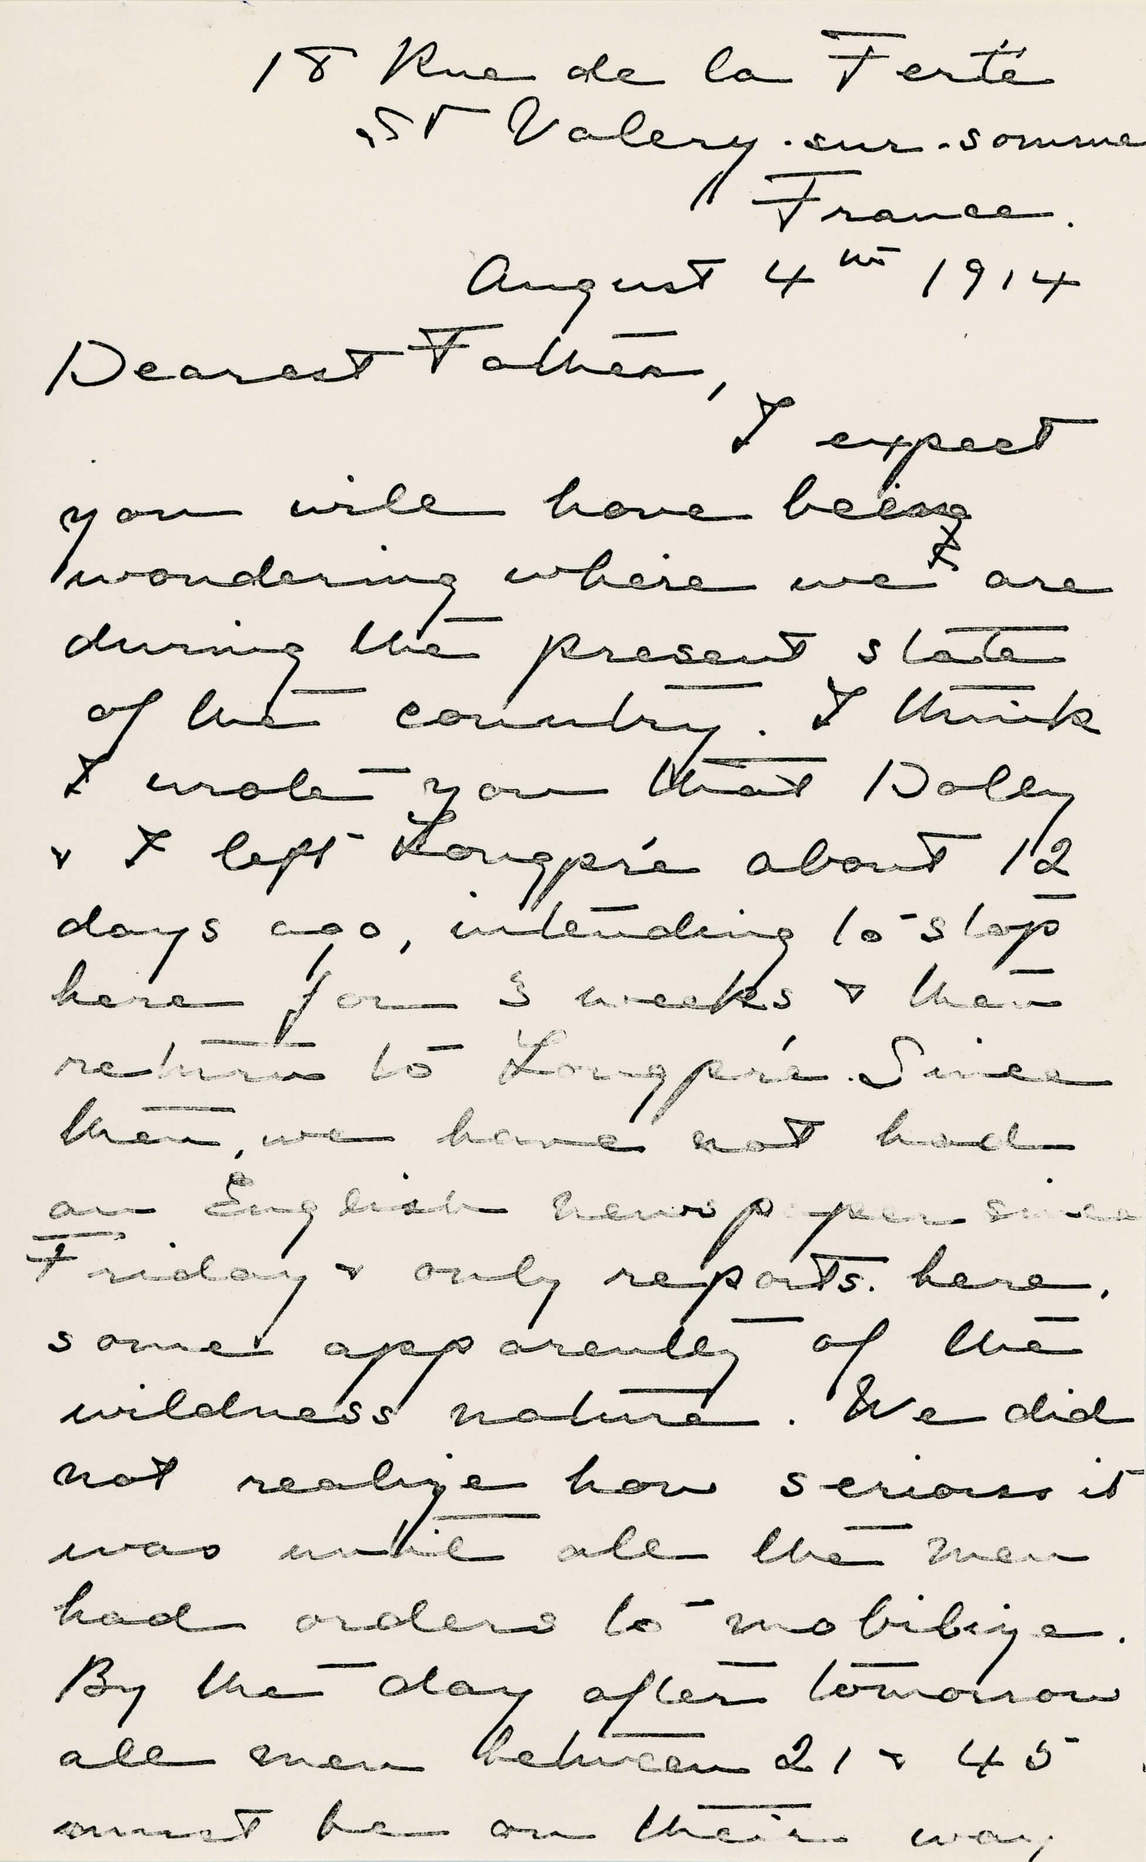 18 Rue de la Ferté
St Valery-sur-somme
France.
August 4th 1914
Dearest Father,
I expect
you will have being
wondering where we are
during the present state
of the country. I think
I wrote you that Dolly
& I left Longpré about 12
days ago, intending to stop
here for 3 weeks & then
return to Longpré. Since
then, we have not had
an English newspaper since
Friday & only reports here,
some apparently of the
wildness nature. We did
not realize how serious it
was until all the men
had orders to mobilize.
By the day after tomorrow
all men between 21 & 45
must be on their way